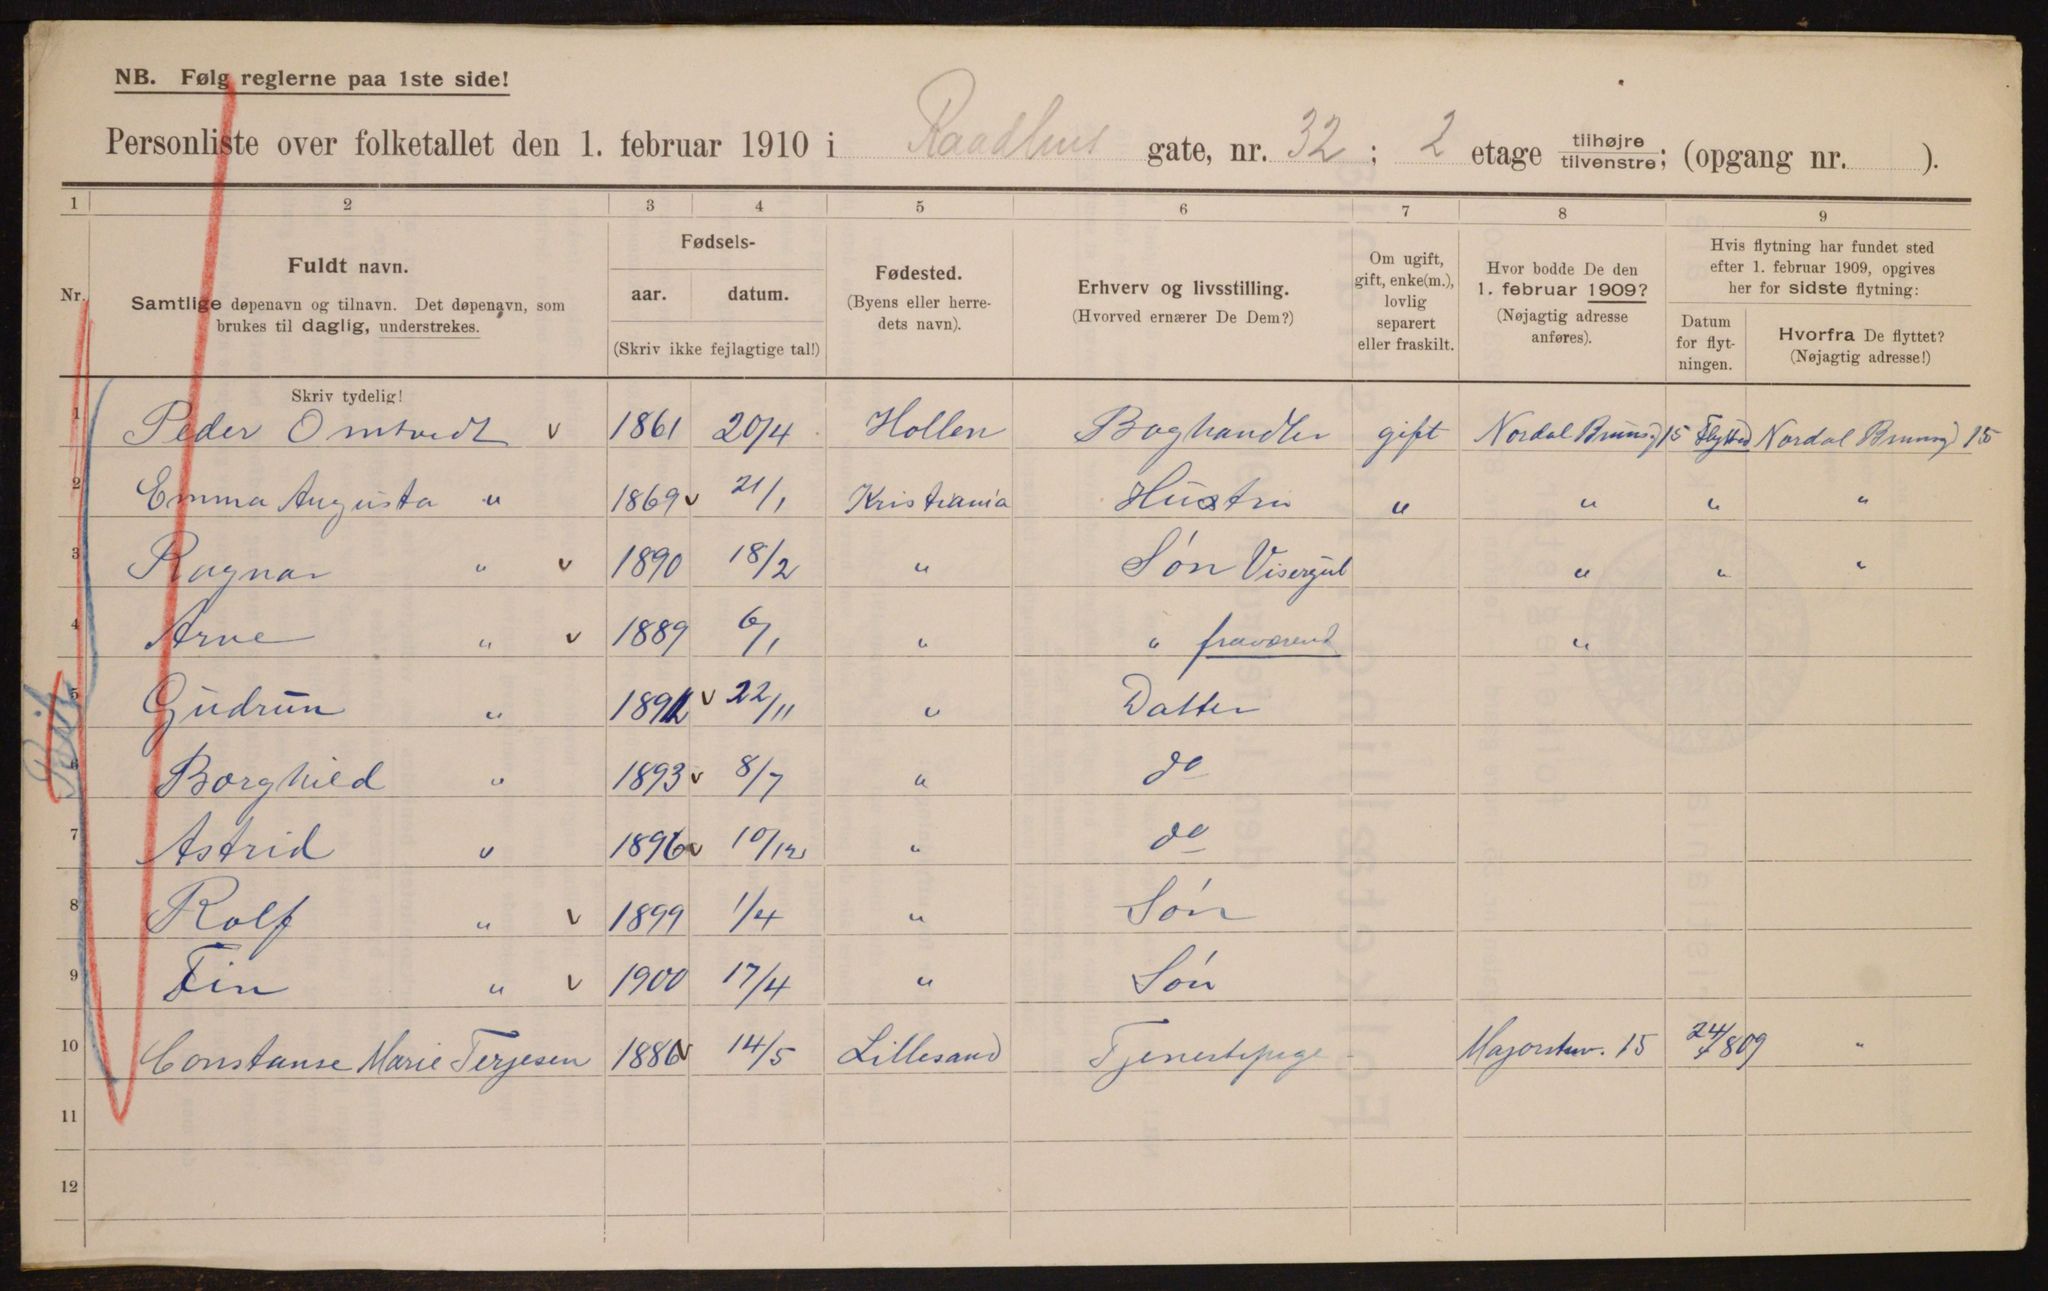 NB. Følg reglerne paa 1ste side!
Personliste over folketallet den 1. februar 1910 i Raadhus gate, nr. 32; 2 etage tilhøjre/tilvenstre; (opgang nr. ).
1 2 3 4 5 6 7 8 9
Nr.
Fuldt navn.
Samtlige døpenavn og tilnavn. Det døpenavn, som
brukes til daglig, understrekes.
Fødsels-
aar. datum.
(Skriv ikke fejlagtige tal!)
Fødested.
(Byens eller herre-
dets navn).
Erhverv og livsstilling.
(Hvorved ernærer De Dem?)
Om ugift,
gift, enke(m.),
lovlig
separert
eller fraskilt.
Hvor bodde De den
1. februar 1909?
(Nøjagtig adresse
anføres).
Hvis flytning har fundet sted
efter 1. februar 1909, opgives
her for sidste flytning:
Datum
for flyt-
ningen.
Hvorfra De flyttet?
(Nøjagtig adresse!)
Skriv tydelig!
1 Peder Omtvedt v 1861 20/4 Hollen Boghandler gift Nordal Brunsg 15 Flytted Nordal Brunsg 15
2 Emma Augusta " 1869 v 21/1 Kristiania Hustru " " " "
3 Ragnar " v 1890 18/2 " Søn Visergut " " "
4 Arne " v 1889 6/1 " " fraværend "
5 Gudrun " 1892 v 22/11 " Datter
6 Borghild " 1893 v 8/7 " do
7 Astrid " 1896 v 10/12 " do
8 Rolf " v 1899 1/4 " Søn
9 Fin " v 1900 17/4 " Søn
10 Constanse Marie Terjesen 1886 v 14/5 Lillesand Tjenestepige Majorstuv. 15 24/8 09 "
11
12